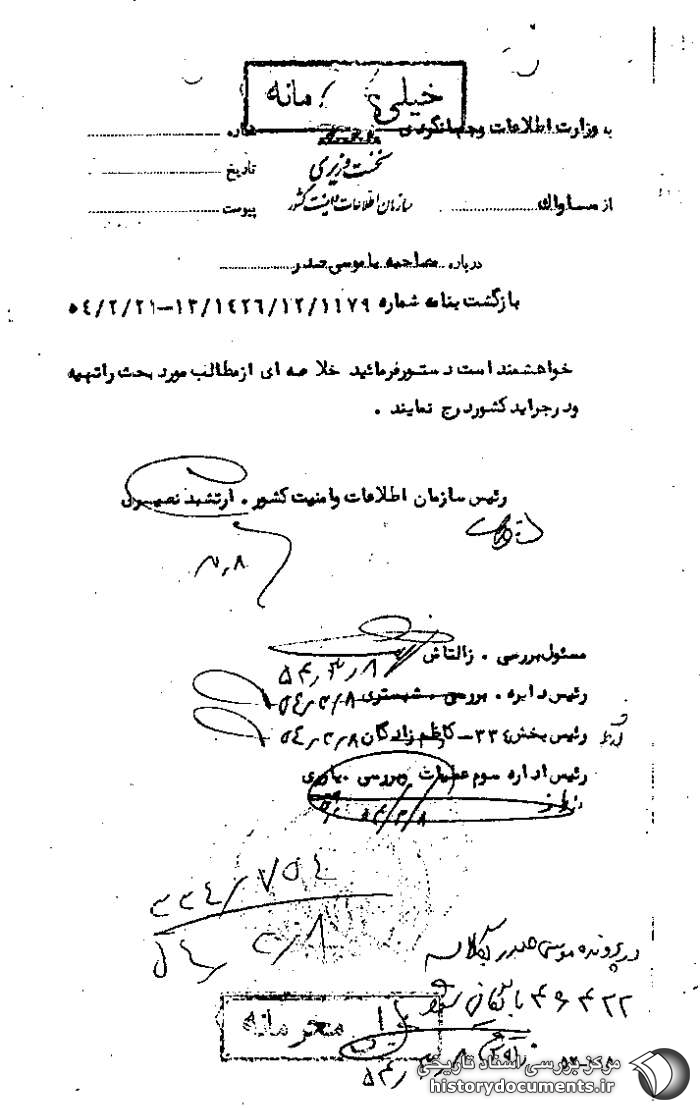 خیلی محرمانه
به وزارت اطلاعات وجهانگردی
شماره
نخست وزیری
تاریخ
از ساواك
سازمان اطلاعات و امنیت کشور
پیوست
درباره مصاحبه با موسی صدر
بازگشت بنامه شماره ۵٤/۲/۲۱-۱۳/۱٤۲٦/۱۲/۱۱۷۹
خواهشمند است دستور فرمائید خلاصه ای از مطالب مورد بحث را تهیه
و در جراید کشور درج نمایند .
رئیس سازمان اطلاعات و امنیت کشور . ارتشبد نصیری
مسئول بررسی . زالتاش
۵۴/۳/۸
رئیس دایره . بررسی . شبستری ۵٤/۳/۸
رئیس بخش ۳۳٤ - کاظم زادگان ۵٤/۳/۸
رئیس اداره سوم عملیات و بررسی
۵۴/۳/۸
۳۳٤/۷۵٤
۵٤/۳/۸
در پرونده موسی صدر
۴۶۴۲۲ بایگانی شود
خیلی محرمانه
۵۴/۳/۸
مرکز بررسی اسناد تاریخی
historydocuments.ir